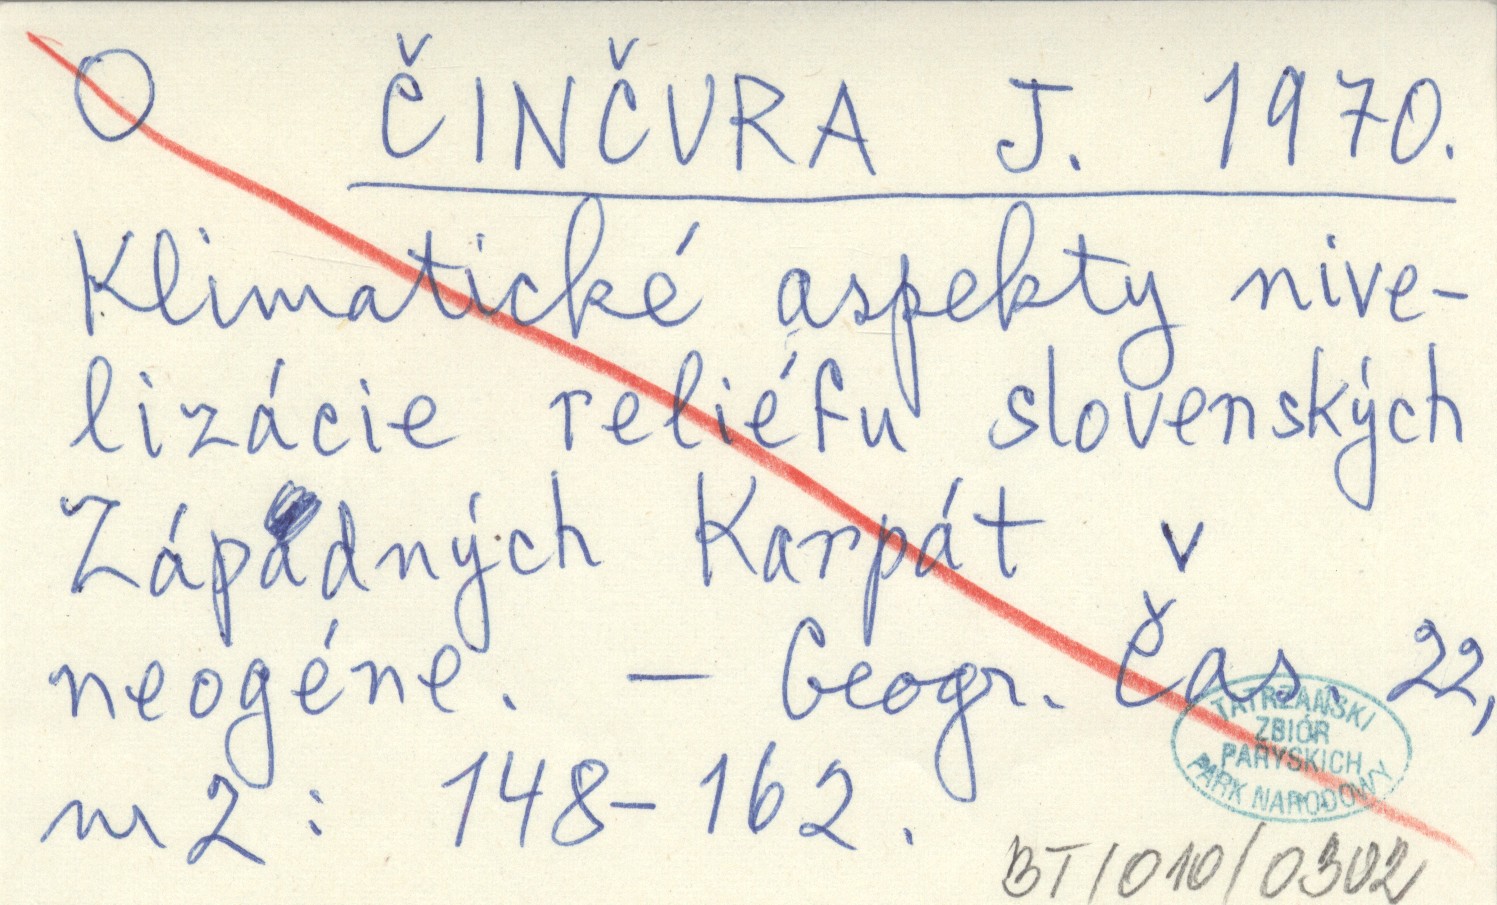 O ČINČURA J. 1970.
Klimatické aspekty nive-
lizácie reliéfu slovenských
Západných Karpát v
neogéne. — Geogr. Čas. 22,
nr 2 : 148-162.
TATRZAŃSKI
ZBIÓR
PARYSKICH
PARK NARODOWY
BT/010/0302